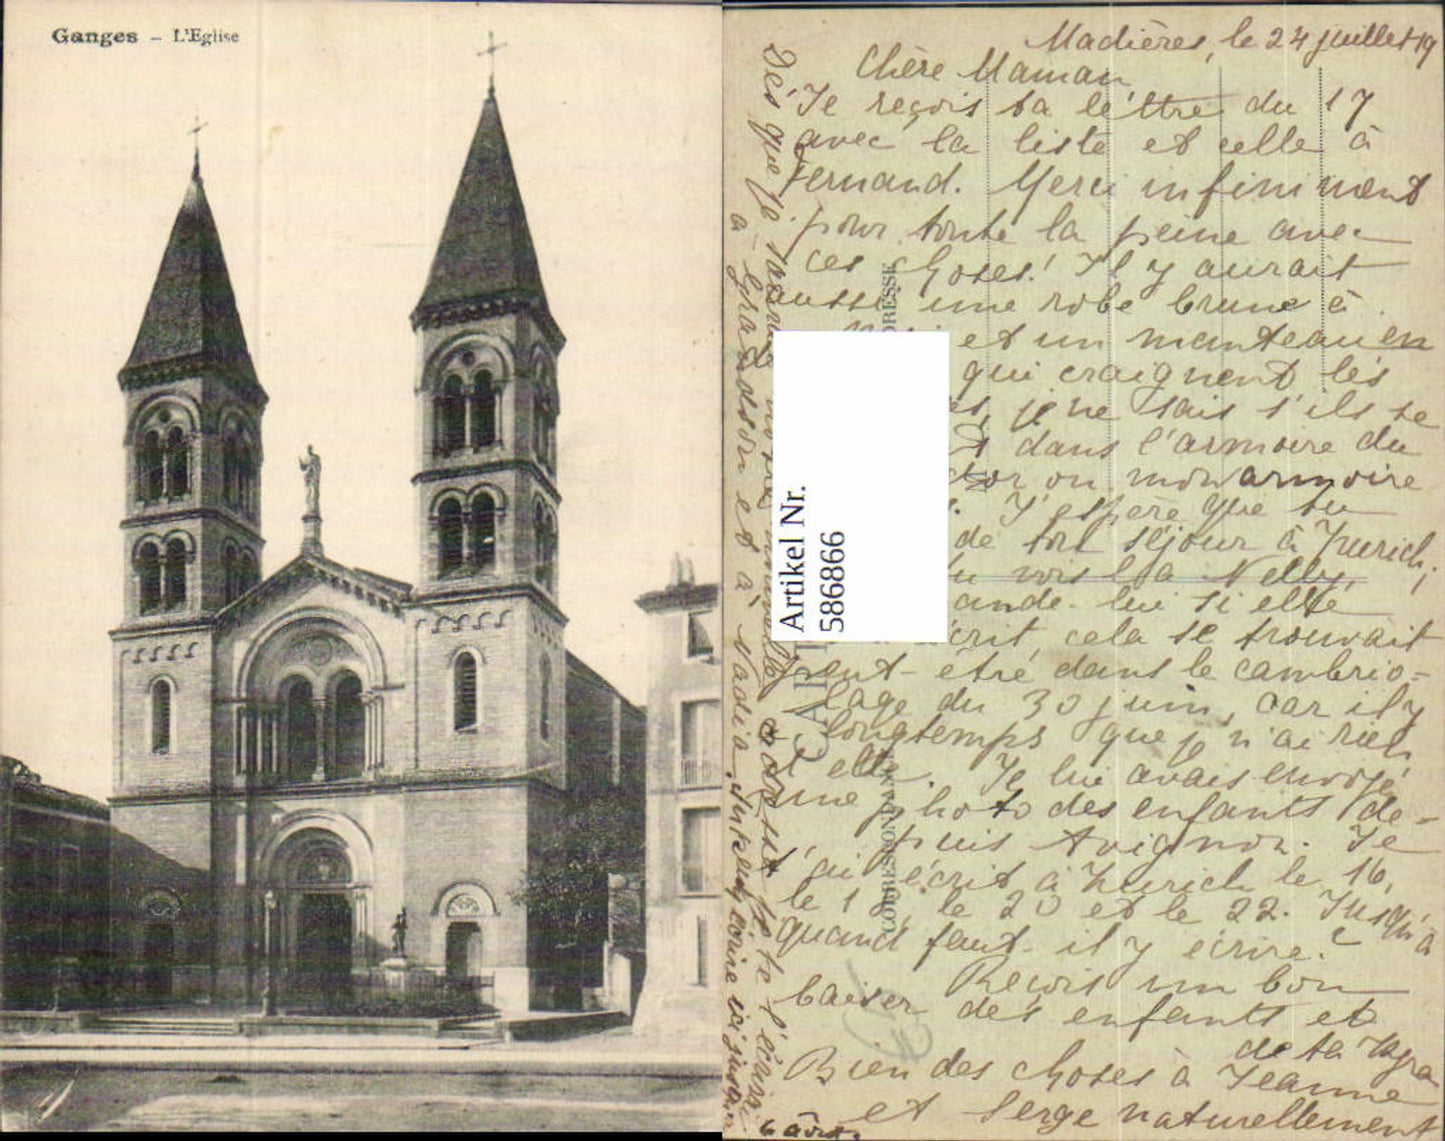 Ganges – L'Eglise
Madières, le 24 juillet 19
Chère Maman,
Je reçois ta lettre du 17
avec la liste et celle à
Fernand. Merci infiniment
pour toute la peine avec
ces choses! Il y aurait
aussi une robe brune à
et un manteau en
qui craignent les
je ne sais s'ils se
dans l'armoire du
ou mon armoire
J'espère que tu
de ton séjour à Zurich;
tu vois la Nelly,
ande-lui si elle
écrit, cela se trouvait
peut-être dans le cambrio-
lage du 30 juin, car il y
a longtemps que je n'ai rien
d'elle. Je lui avais envoyé
une photo des enfants de-
puis Avignon. Je
t'ai écrit à Zurich le 16,
le 1 , le 20 et le 22. Jusqu'à
quand faut-il y écrire?
Reçois un bon
baiser des enfants et
de ta Myra
Bien des choses à Jeanne
et Serge naturellement
Dès que je saurai notre nouvelle adresse je te l'écrirai
à Grandson et à Nadia. Tu peux écrire ici jusqu'
6 août.
CARTE
CORRESPONDANCE
ADRESSE
Artikel Nr.
586866